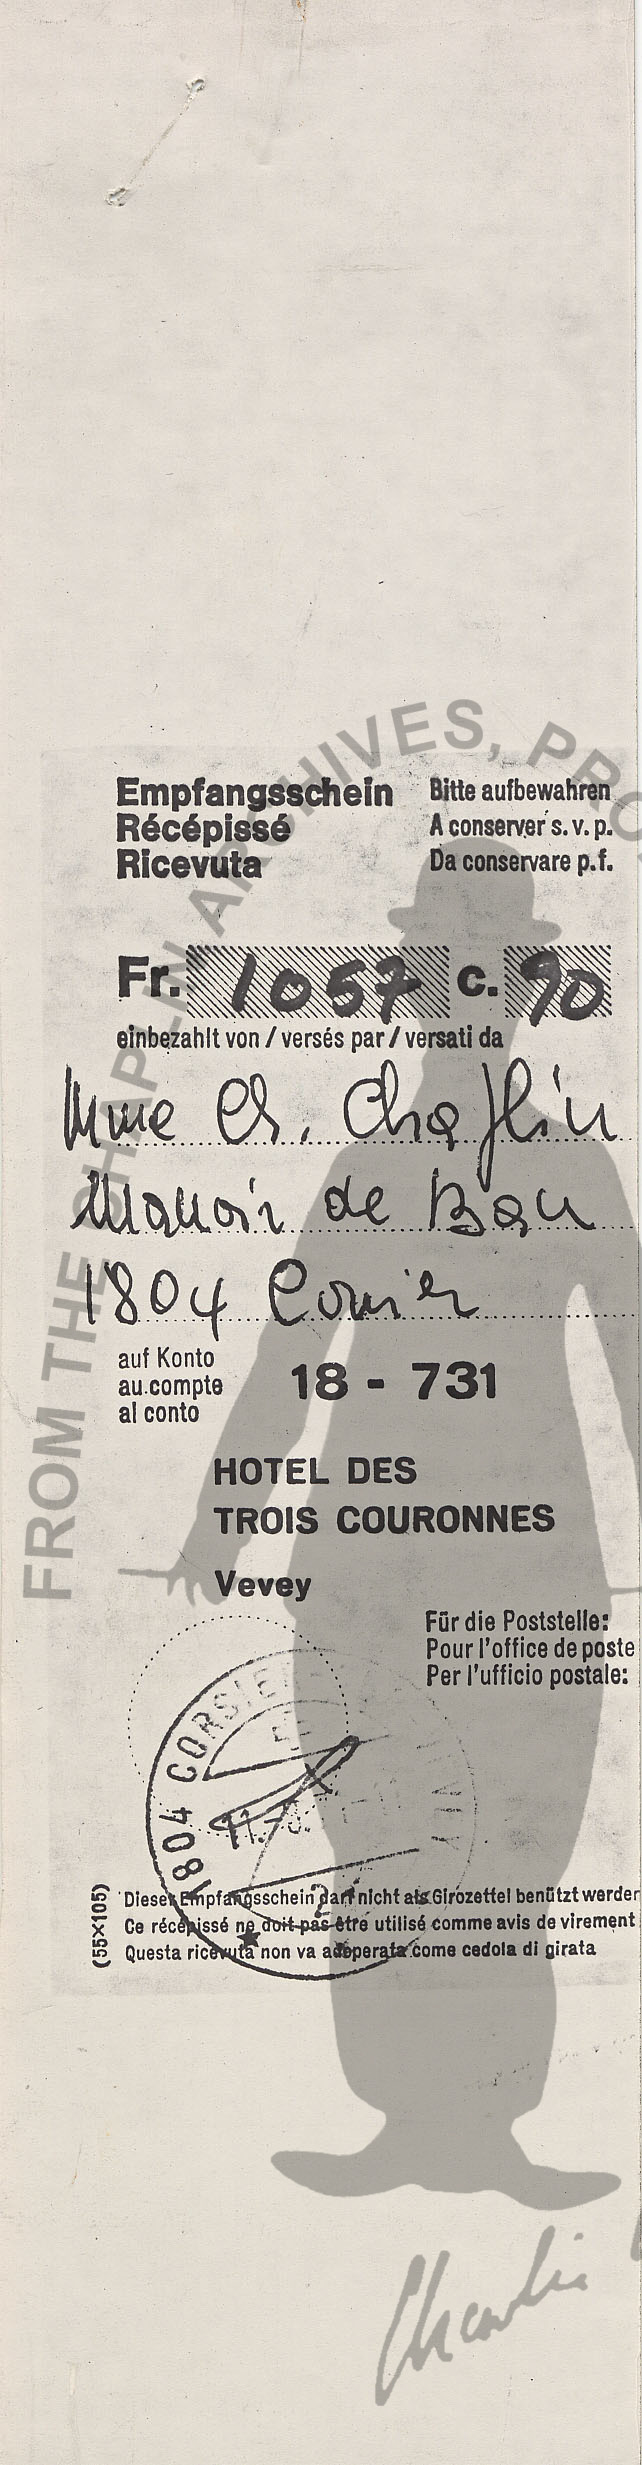 FROM THE CHAPLIN ARCHIVES, PRO
Empfangsschein Bitte aufbewahren
Récépissé A conserver s. v. p.
Ricevuta Da conservare p. f.
Fr. 1057 c. 90
einbezahlt von / versés par / versati da
Mme Ch. Chaplin
Manoir de Ban
1804 Corsier
auf Konto
au compte 18 - 731
al conto
HOTEL DES
TROIS COURONNES
Vevey
Für die Poststelle:
Pour l'office de poste
Per l'ufficio postale:
1804 CORSIER
(55×105)
Dieser Empfangsschein darf nicht als Girozettel benützt werder
Ce récépissé ne doit pas être utilisé comme avis de virement
Questa ricevuta non va adoperata come cedola di girata
Charlie